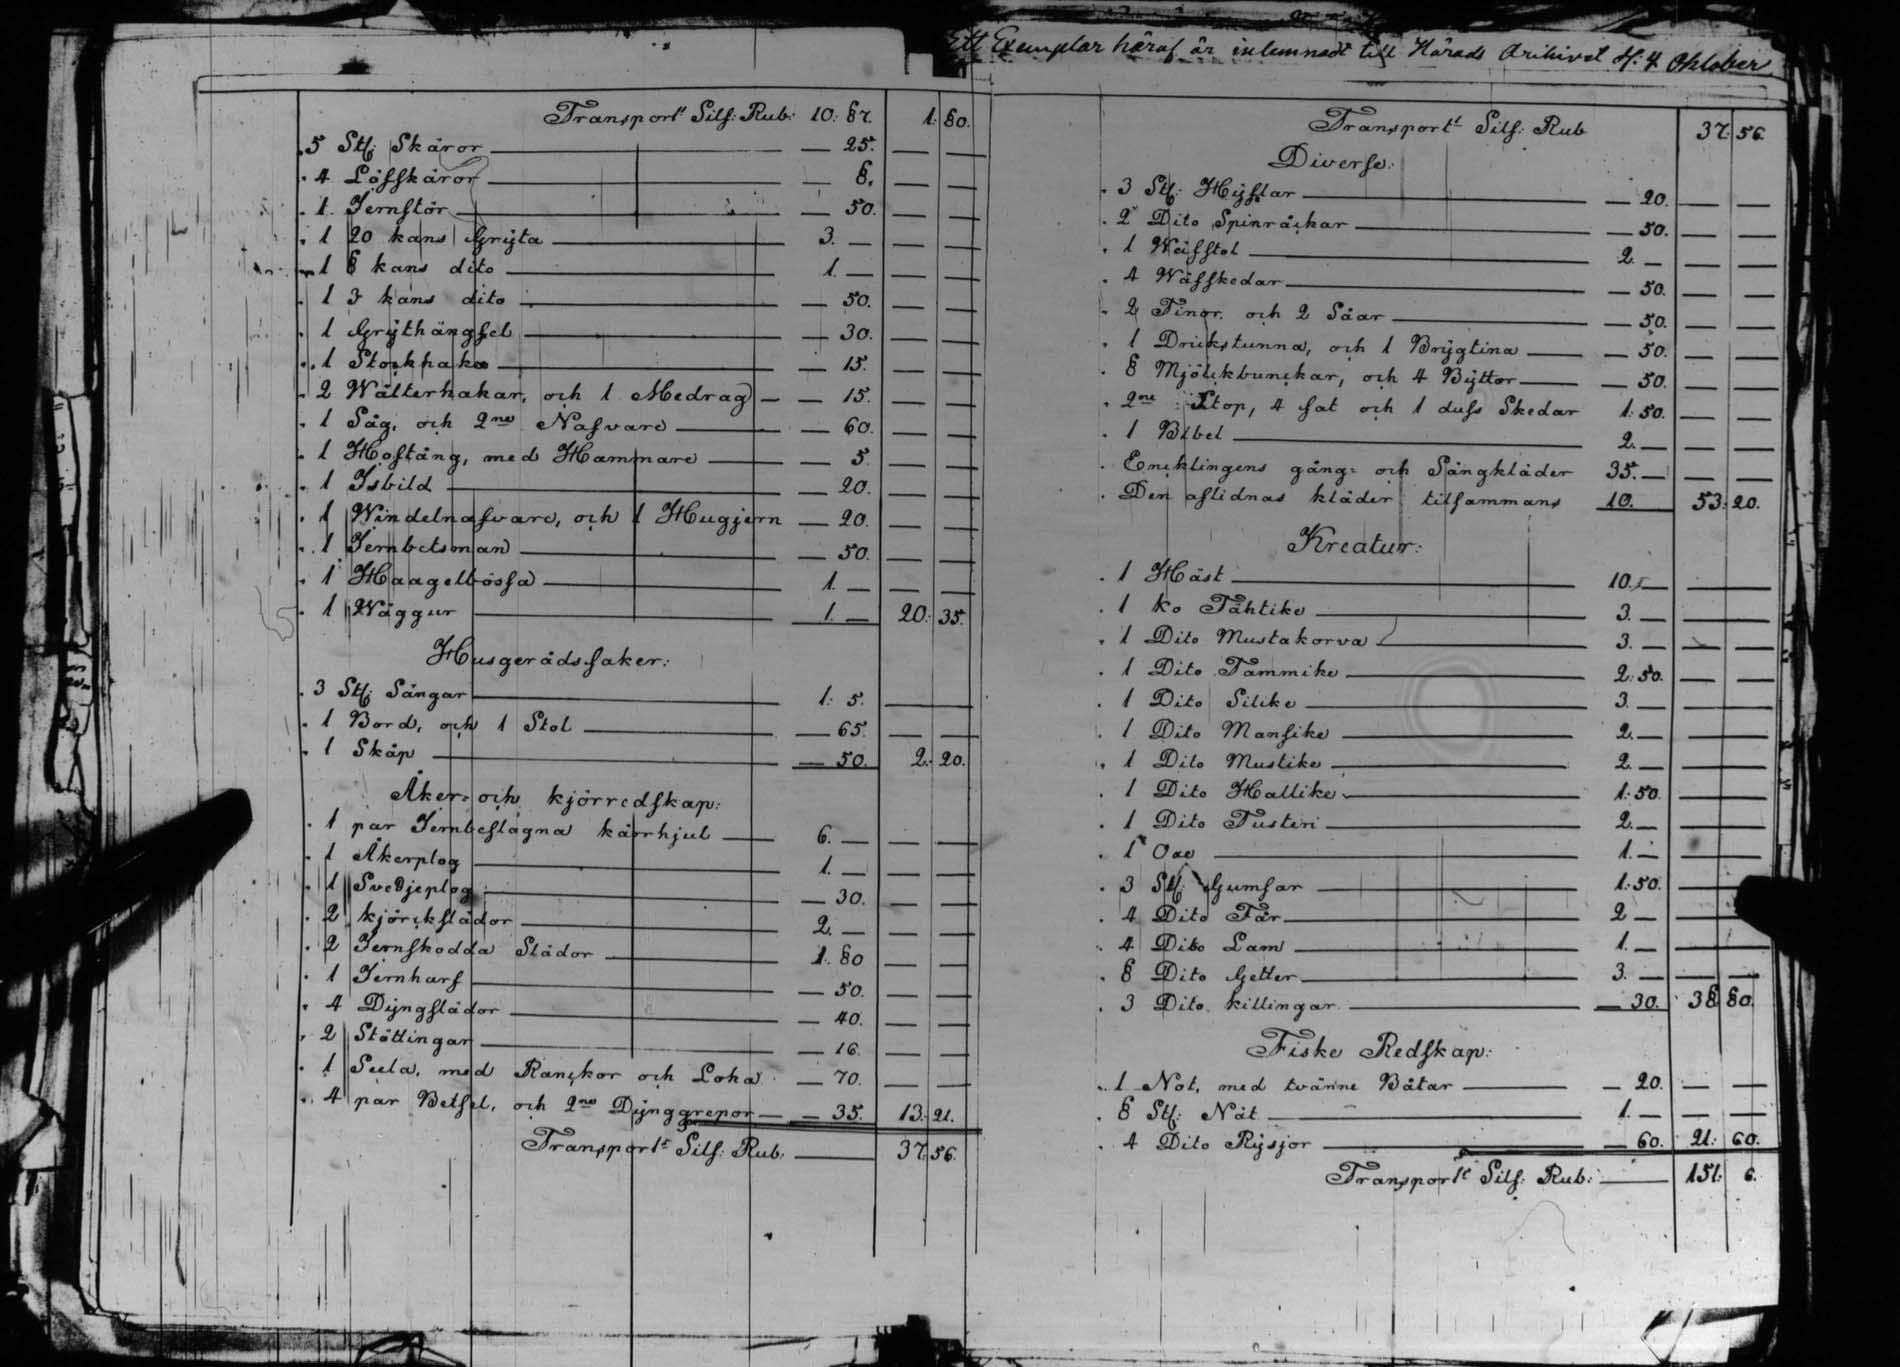 Transport Silf: Rub: 10: 87. 1: 80.
5 St: Skäror — 25. — —
4 Löfskäror — 8. — —
1 Jernstör — 50. — —
1 20 kans Gryta 3. — — —
1 8 kans dito 1. — — —
1 3 kans dito — 50. — —
1 Grythängsel — 30. — —
1 Stockhake — 15. — —
2 Wälterhakar, och 1 Medrag — 15. — —
1 Såg, och 2ne Nafvare — 60. — —
1 Hoftång, med Hammare — 5. — —
1 Isbild — 20. — —
1 Windelnafvare, och 1 Hugjern — 20. — —
1 Jernbetsman — 50. — —
1 Haagelbössa 1. — — —
1 Wäggur 1. — 20: 35.
Husgerådssaker:
3 St: Sängar 1: 5. — —
1 Bord, och 1 Stol — 65. — —
1 Skåp — 50. 2: 20.
Åker- och kjörredskap:
1 par Jernbeslagna kärrhjul 6. — — —
1 Åkerplog 1. — — —
1 Svedjeplog — 30. — —
2 kjörckslädor 2. — — —
2 Jernskodda Slädor 1: 80 — —
1 Jernharf — 50. — —
4 Dyngslädor — 40. — —
2 Stöttingar — 16. — —
1 Seela, med Ranckor och Loka — 70. — —
4 par Betsel, och 2ne Dynggrepor — 35. 13: 21.
Transport Silf: Rub: 37. 56.
Ett Exemplar häraf är inlemnadt till Härads Arkivet d. 4 Oktober
Transport Silf: Rub 37. 56.
Diverse:
3 St: Hyflar — 20. — —
2 Dito Spinråckar — 50. — —
1 Wäfstol 2. — — —
4 Wäfskedar — 50. — —
2 Tinor, och 2 Såar — 50. — —
1 Dricktunna, och 1 Brygtina — 50. — —
8 Mjölckbunckar, och 4 Byttor — 50. — —
2ne Stop, 4 fat och 1 duss Skedar 1: 50. — —
1 Bibel 2. — — —
Encklingens gång- och Sängkläder 35. — — —
Den aflidnas kläder tilsammans 10. 53: 20.
Kreatur:
1 Häst 10. — — —
1 ko Tähtike 3. — — —
1 Dito Mustakorva 3. — — —
1 Dito Tammike 2: 50. — —
1 Dito Silike 3. — — —
1 Dito Mansike 2. — — —
1 Dito Mustike 2. — — —
1 Dito Hallike 1: 50. — —
1 Dito Tusteri 2. — — —
1 Oxe 1. — — —
3 St: Gumsar 1: 50. —
4 Dito Får 2 — —
4 Dito Lam 1. — — —
8 Dito Getter 3. — — —
3 Dito killingar — 30. 38. 80.
Fiske Redskap:
1 Not, med tvänne Båtar — 20. — —
8 St: Nät 1. — — —
4 Dito Rysjor — 60. 21: 60.
Transport Silf: Rub: 151: 6.